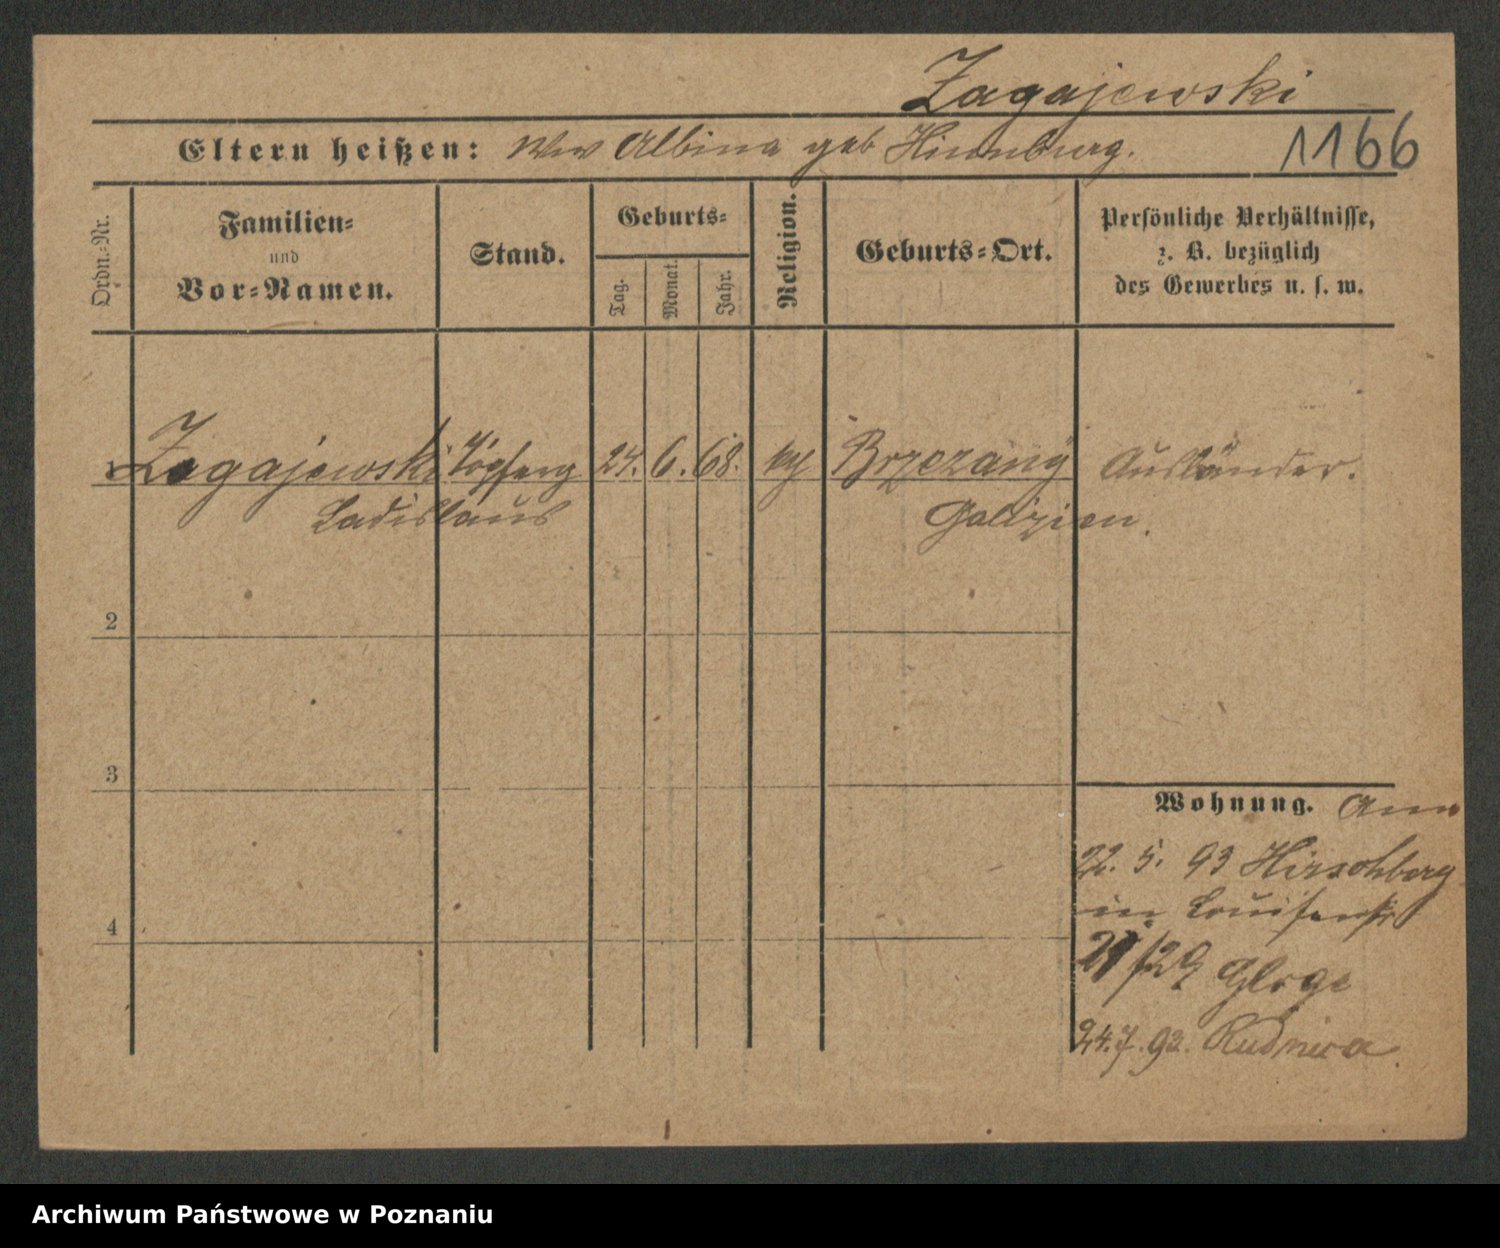 Zagajewski
Eltern heißen: Wwe Albina geb Hinnburg.
1166
Ordn.-Nr.
Familien-
und
Vor-Namen.
Stand.
Geburts-
Tag.
Monat.
Jahr.
Religion.
Geburts-Ort.
Persönliche Verhältnisse,
z. B. bezüglich
des Gewerbes u. s. w.
1 Zagajewski Töpferg 24. 6. 68. Brzezany Ausländer.
Ladislaus Galizien.
2
3
4
Wohnung.
22. 5. 93 Hirschberg
in Louisenstr
/29 Gloge
24. 7. 93. Rudnicza
Archiwum Państwowe w Poznaniu